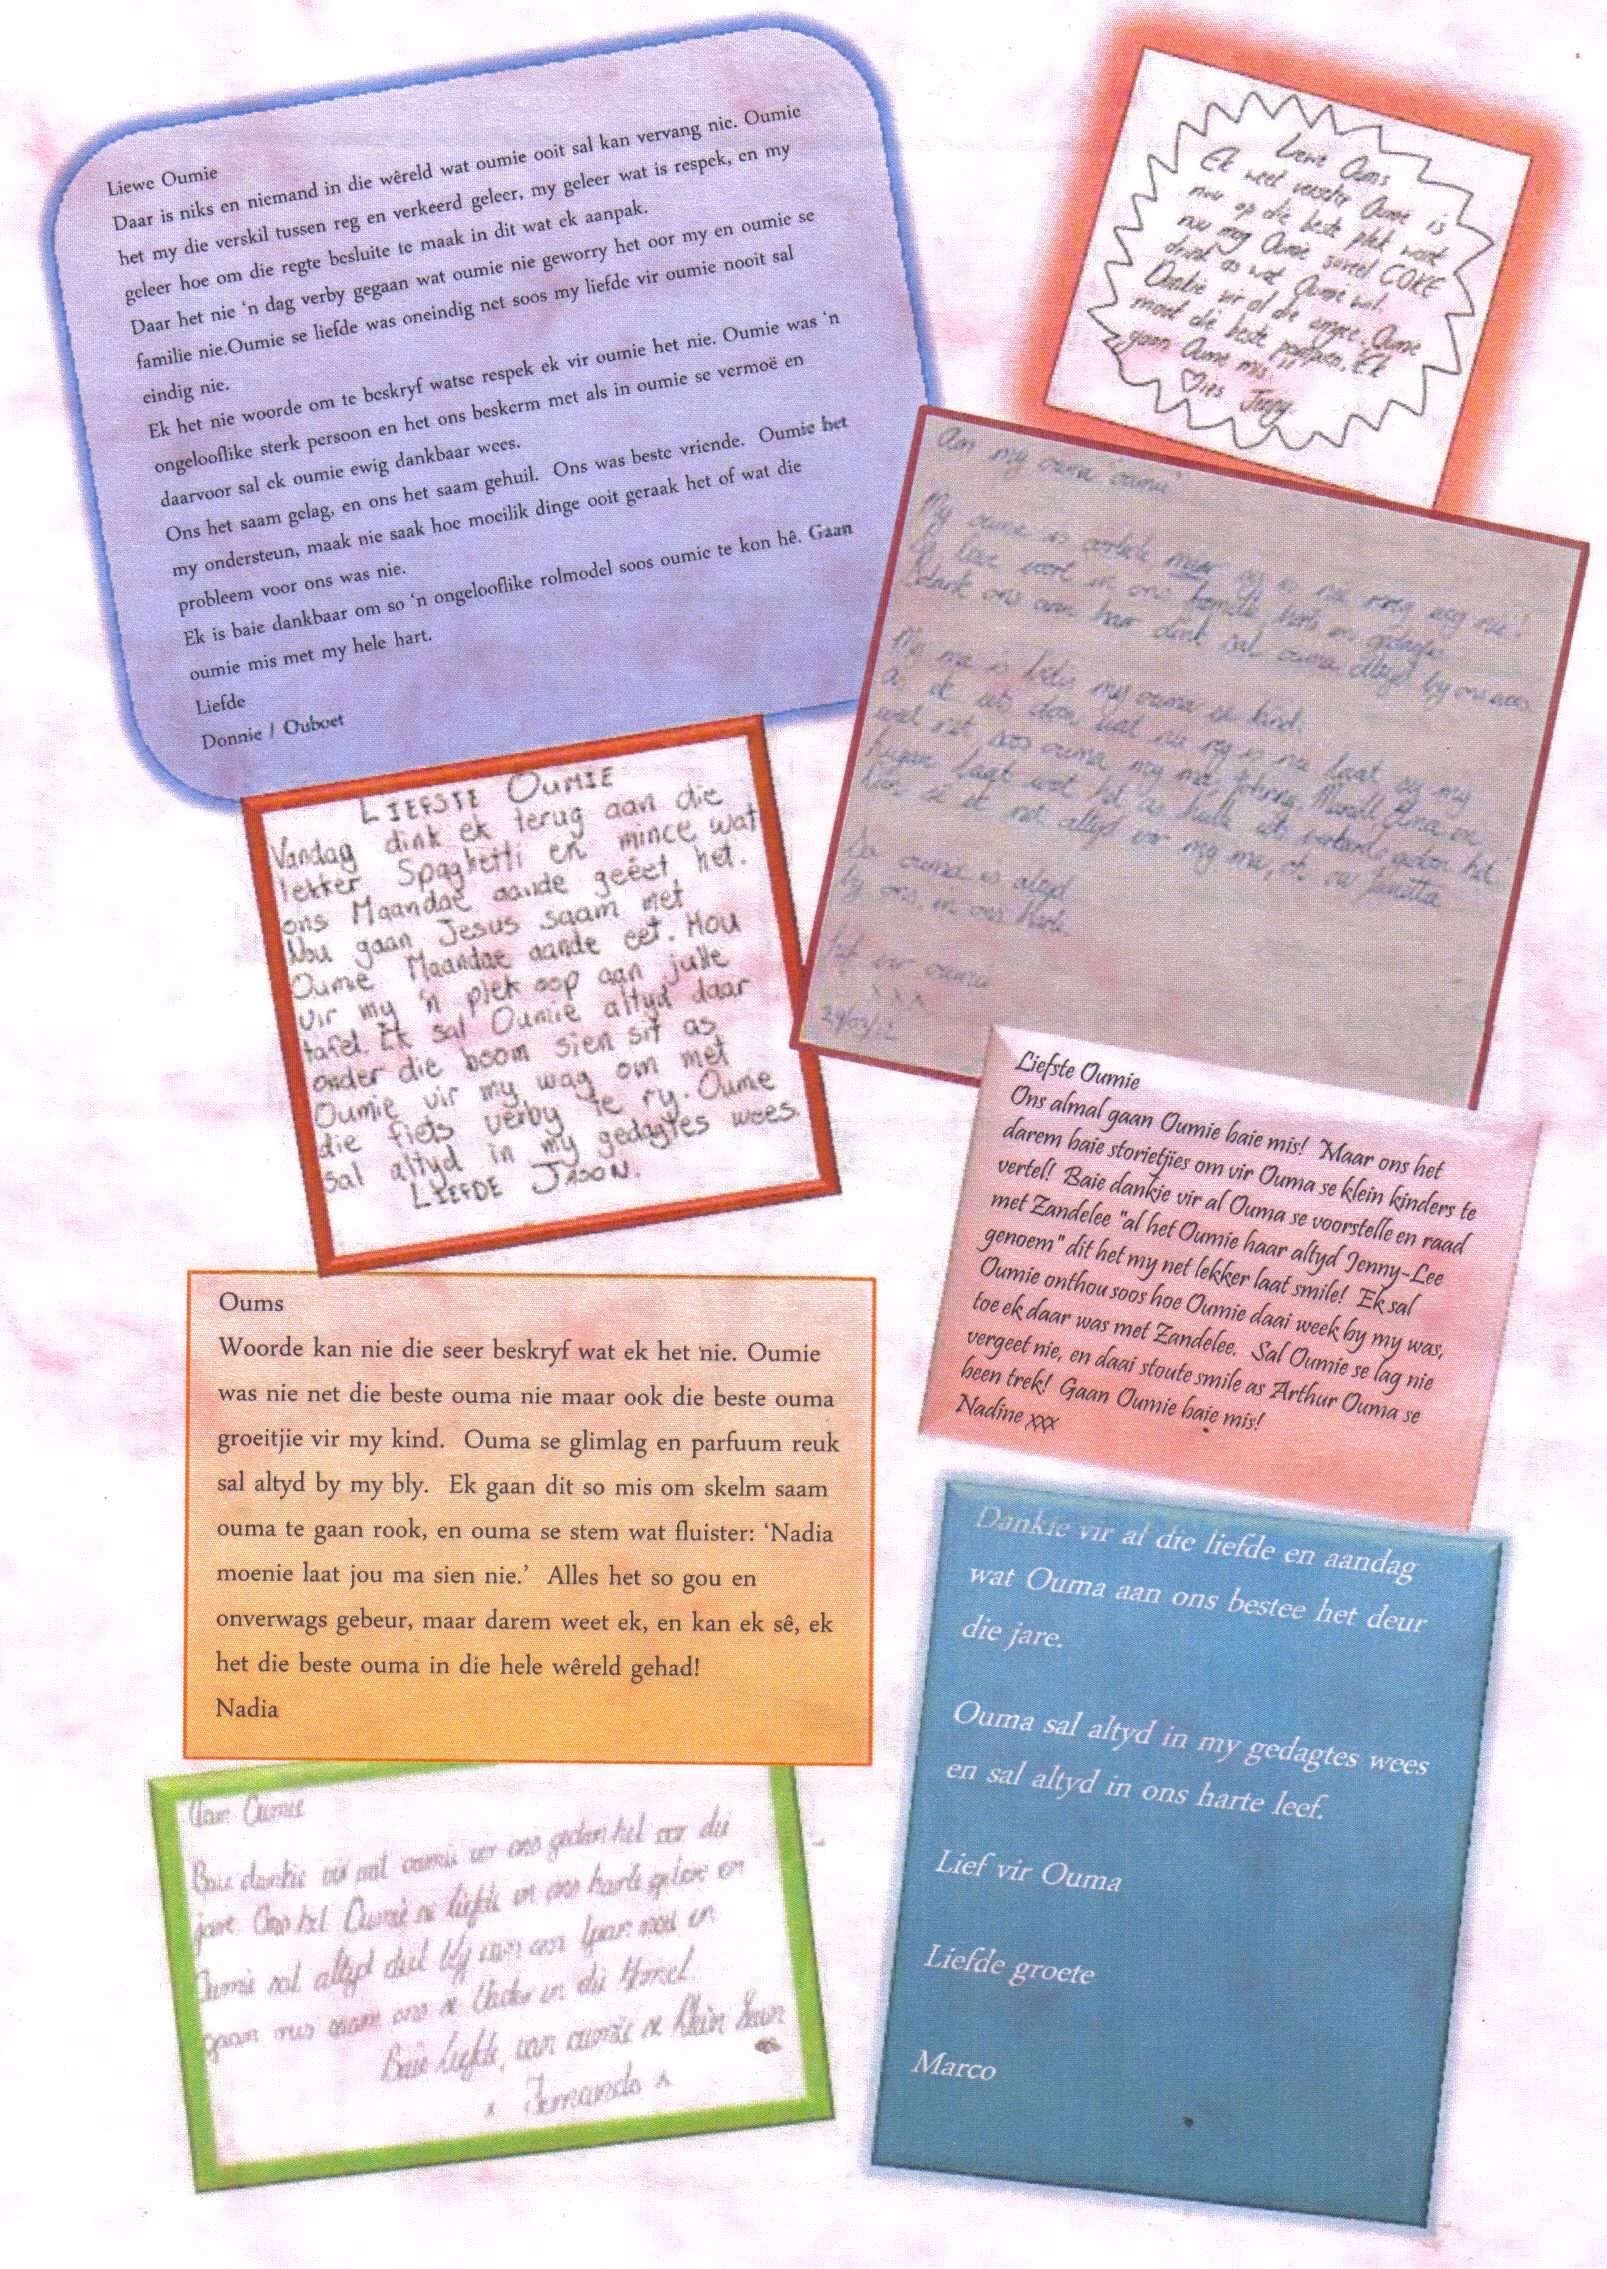 Liewe Oumie
Daar is niks en niemand in die wêreld wat oumie ooit sal kan vervang nie. Oumie
het my die verskil tussen reg en verkeerd geleer, my geleer wat is respek, en my
geleer hoe om die regte besluite te maak in dit wat ek aanpak.
Daar het nie 'n dag verby gegaan wat oumie nie geworry het oor my en oumie se
familie nie.Oumie se liefde was oneindig net soos my liefde vir oumie nooit sal
eindig nie.
Ek het nie woorde om te beskryf watse respek ek vir oumie het nie. Oumie was 'n
ongelooflike sterk persoon en het ons beskerm met als in oumie se vermoë en
daarvoor sal ek oumie ewig dankbaar wees.
Ons het saam gelag, en ons het saam gehuil. Ons was beste vriende. Oumie het
my ondersteun, maak nie saak hoe moeilik dinge ooit geraak het of wat die
probleem voor ons was nie.
Ek is baie dankbaar om so 'n ongelooflike rolmodel soos oumie te kon hê. Gaan
oumie mis met my hele hart.
Liefde
Donnie / Ouboet
Liewe Oums
Ek weet Oumie is
nou op die beste plek want
nou mag Oumie soveel COKE
drink as wat Oumie wil.
Dankie vir al die Oumie
moet die beste Ek
gaan Oumie mis!
Aan my ouma 'oumie'
My oumie is oorlede, maar sy is nie reg weg nie!
Sy leef voort in ons familie, harte en gedagtes.
ons aan haar dink sal ouma altyd by ons wees.
My ma is Lida, my ouma se kind.
As ek iets doen wat nie reg is nie laat sy my
net soos ouma my ma, Johnny, en
laat het as hulle iets verkeerds gedoen het.
sê ek net altyd vir my ma, ok ou
So ouma is altyd
by ons, in ons harte.
Lief vir oumie
x x x
29/03/12
LIEFSTE OUMIE
Vandag dink ek terug aan die
lekker Spaghetti en mince wat
ons Maandae aande geëet het.
Nou gaan Jesus saam met
Oumie Maandae aande eet. Hou
vir my 'n plek oop aan julle
tafel. Ek sal Oumie altyd daar
onder die boom sien sit as
Oumie vir my wag om met
die fiets verby te ry. Oumie
sal altyd in my gedagtes wees.
LIEFDE JASON.
Liefste Oumie
Ons almal gaan Oumie baie mis! Maar ons het
darem baie storietjies om vir Ouma se klein kinders te
vertel! Baie dankie vir al Ouma se voorstelle en raad
met Zandelee "al het Oumie haar altyd Jenny-Lee
genoem" dit het my net lekker laat smile! Ek sal
Oumie onthou soos hoe Oumie daai week by my was,
toe ek daar was met Zandelee. Sal Oumie se lag nie
vergeet nie, en daai stoute smile as Arthur Ouma se
been trek! Gaan Oumie baie mis!
Nadine xxx
Oums
Woorde kan nie die seer beskryf wat ek het nie. Oumie
was nie net die beste ouma nie maar ook die beste ouma
groeitjie vir my kind. Ouma se glimlag en parfuum reuk
sal altyd by my bly. Ek gaan dit so mis om skelm saam
ouma te gaan rook, en ouma se stem wat fluister: 'Nadia
moenie laat jou ma sien nie.' Alles het so gou en
onverwags gebeur, maar darem weet ek, en kan ek sê, ek
het die beste ouma in die hele wêreld gehad!
Nadia
Dankie vir al die liefde en aandag
wat Ouma aan ons bestee het deur
die jare.
Ouma sal altyd in my gedagtes wees
en sal altyd in ons harte leef.
Lief vir Ouma
Liefde groete
Marco
Oumie
Baie dankie vir wat oumie vir ons gedoen het oor die
jare. Ons het Oumie se liefde in ons harte en
Oumie sal altyd deel bly van ons
gaan rus saam ons se Vader in die Hemel.
Baie liefde, van oumie se klein seun
x Fernando x